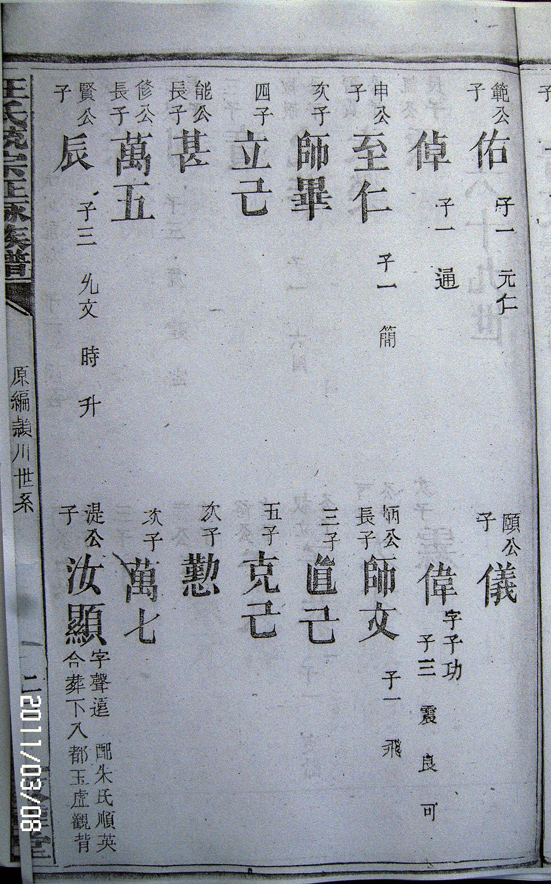 範公子 佑 子一 元仁
倬 子一 通
申公子 至仁 子一 簡
次子 師畢
四子 立己
能公長子 甚
修公長子 萬五
賢公子 辰 子三 允文 時 升
頤公子 儀
偉 字子功 子三 震 良 可
炳公長子 師文 子一 飛
三子 直己
五子 克己
次子 懃
次子 萬七
湜公子 汝顯 字聲遠 配朱氏順英 合葬下入都玉虛觀背
汪氏統宗正脉族譜
原編潁川世系
二
堂
2011/03/08